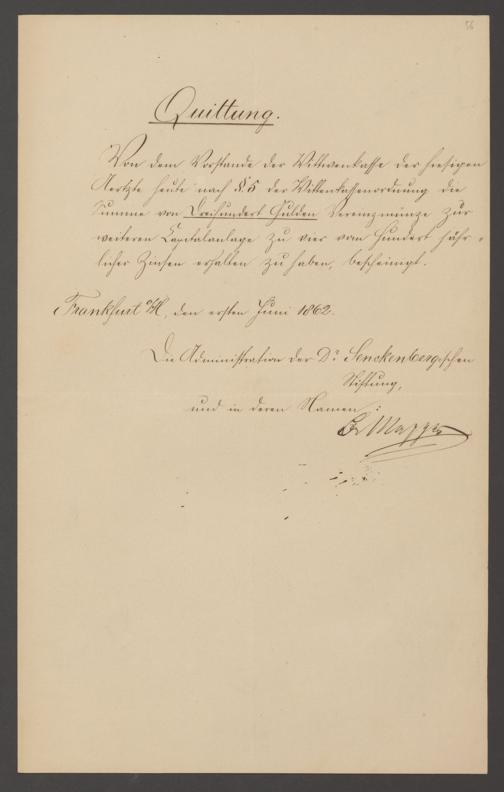 56
Quittung.
Von dem Vorstande der Wittwenkasse der hiesigen
Aertzte heute nach § 5 der Wittwenkassenordnung die
Summe von Dreihundert Gulden Vereinsmünze zur
weiteren Capitalanlage zu vier vom Hundert jähr-
licher Zinsen erhalten zu haben, bescheinigt.
Frankfurt a/M, den ersten Juni 1862.
Die Administration der Dr Senckenbergischen
Stiftung,
und in deren Namen: